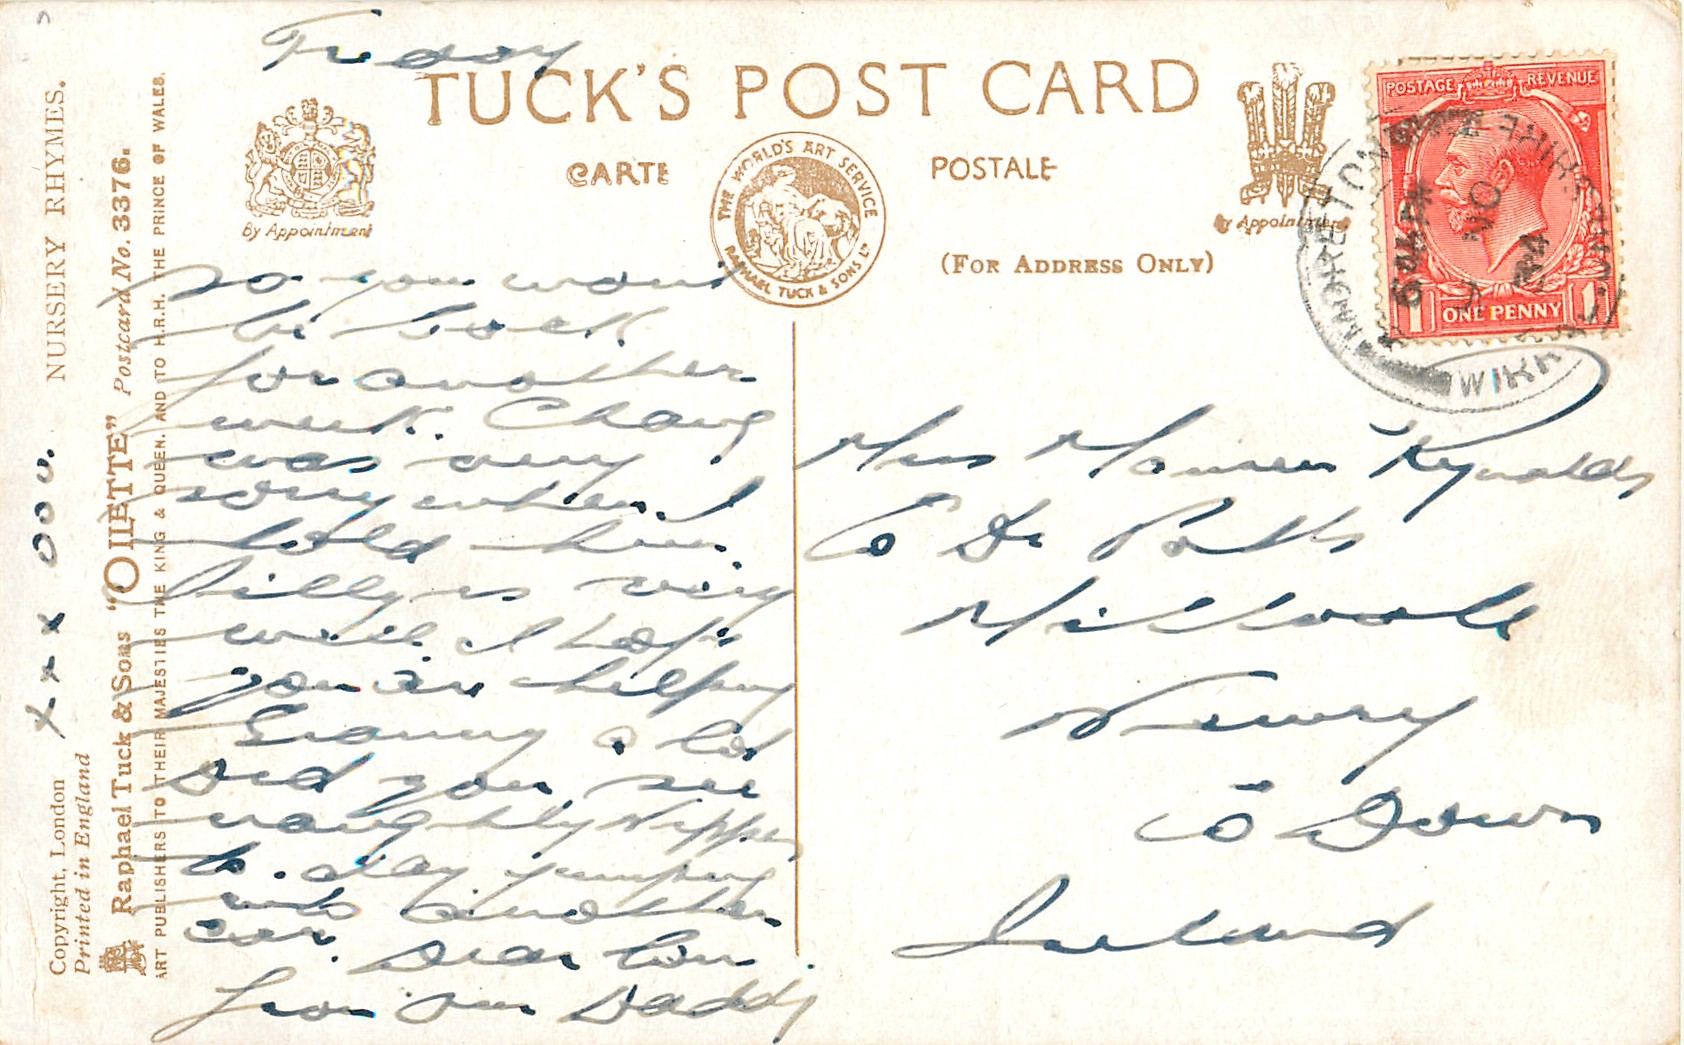 Friday
TUCK'S POST CARD
CARTE POSTALE
By Appointment
THE WORLD'S ART SERVICE
RAPHAEL TUCK & SONS LD
By Appointment
(FOR ADDRESS ONLY)
POSTAGE REVENUE
1 ONE PENNY 1
6 45 PM
NO
24
WIRRAL
NURSERY RHYMES.
Raphael Tuck & Sons "OILETTE" Postcard No. 3376.
ART PUBLISHERS TO THEIR MAJESTIES THE KING & QUEEN, AND TO H.R.H. THE PRINCE OF WALES.
Copyright, London
Printed in England
x x x o o o.
So you wont
be back
for another
week. Chang
was very
sorry when I
told him.
Billy is very
well. I hope
you are helping
Granny a lot
Did you see
naughty Nipper
to. day jumping
into another
car. Dear love
from your Daddy
Miss Maureen Reynolds
Co Dr Potts
Millvale
Newry
Co Down
Ireland